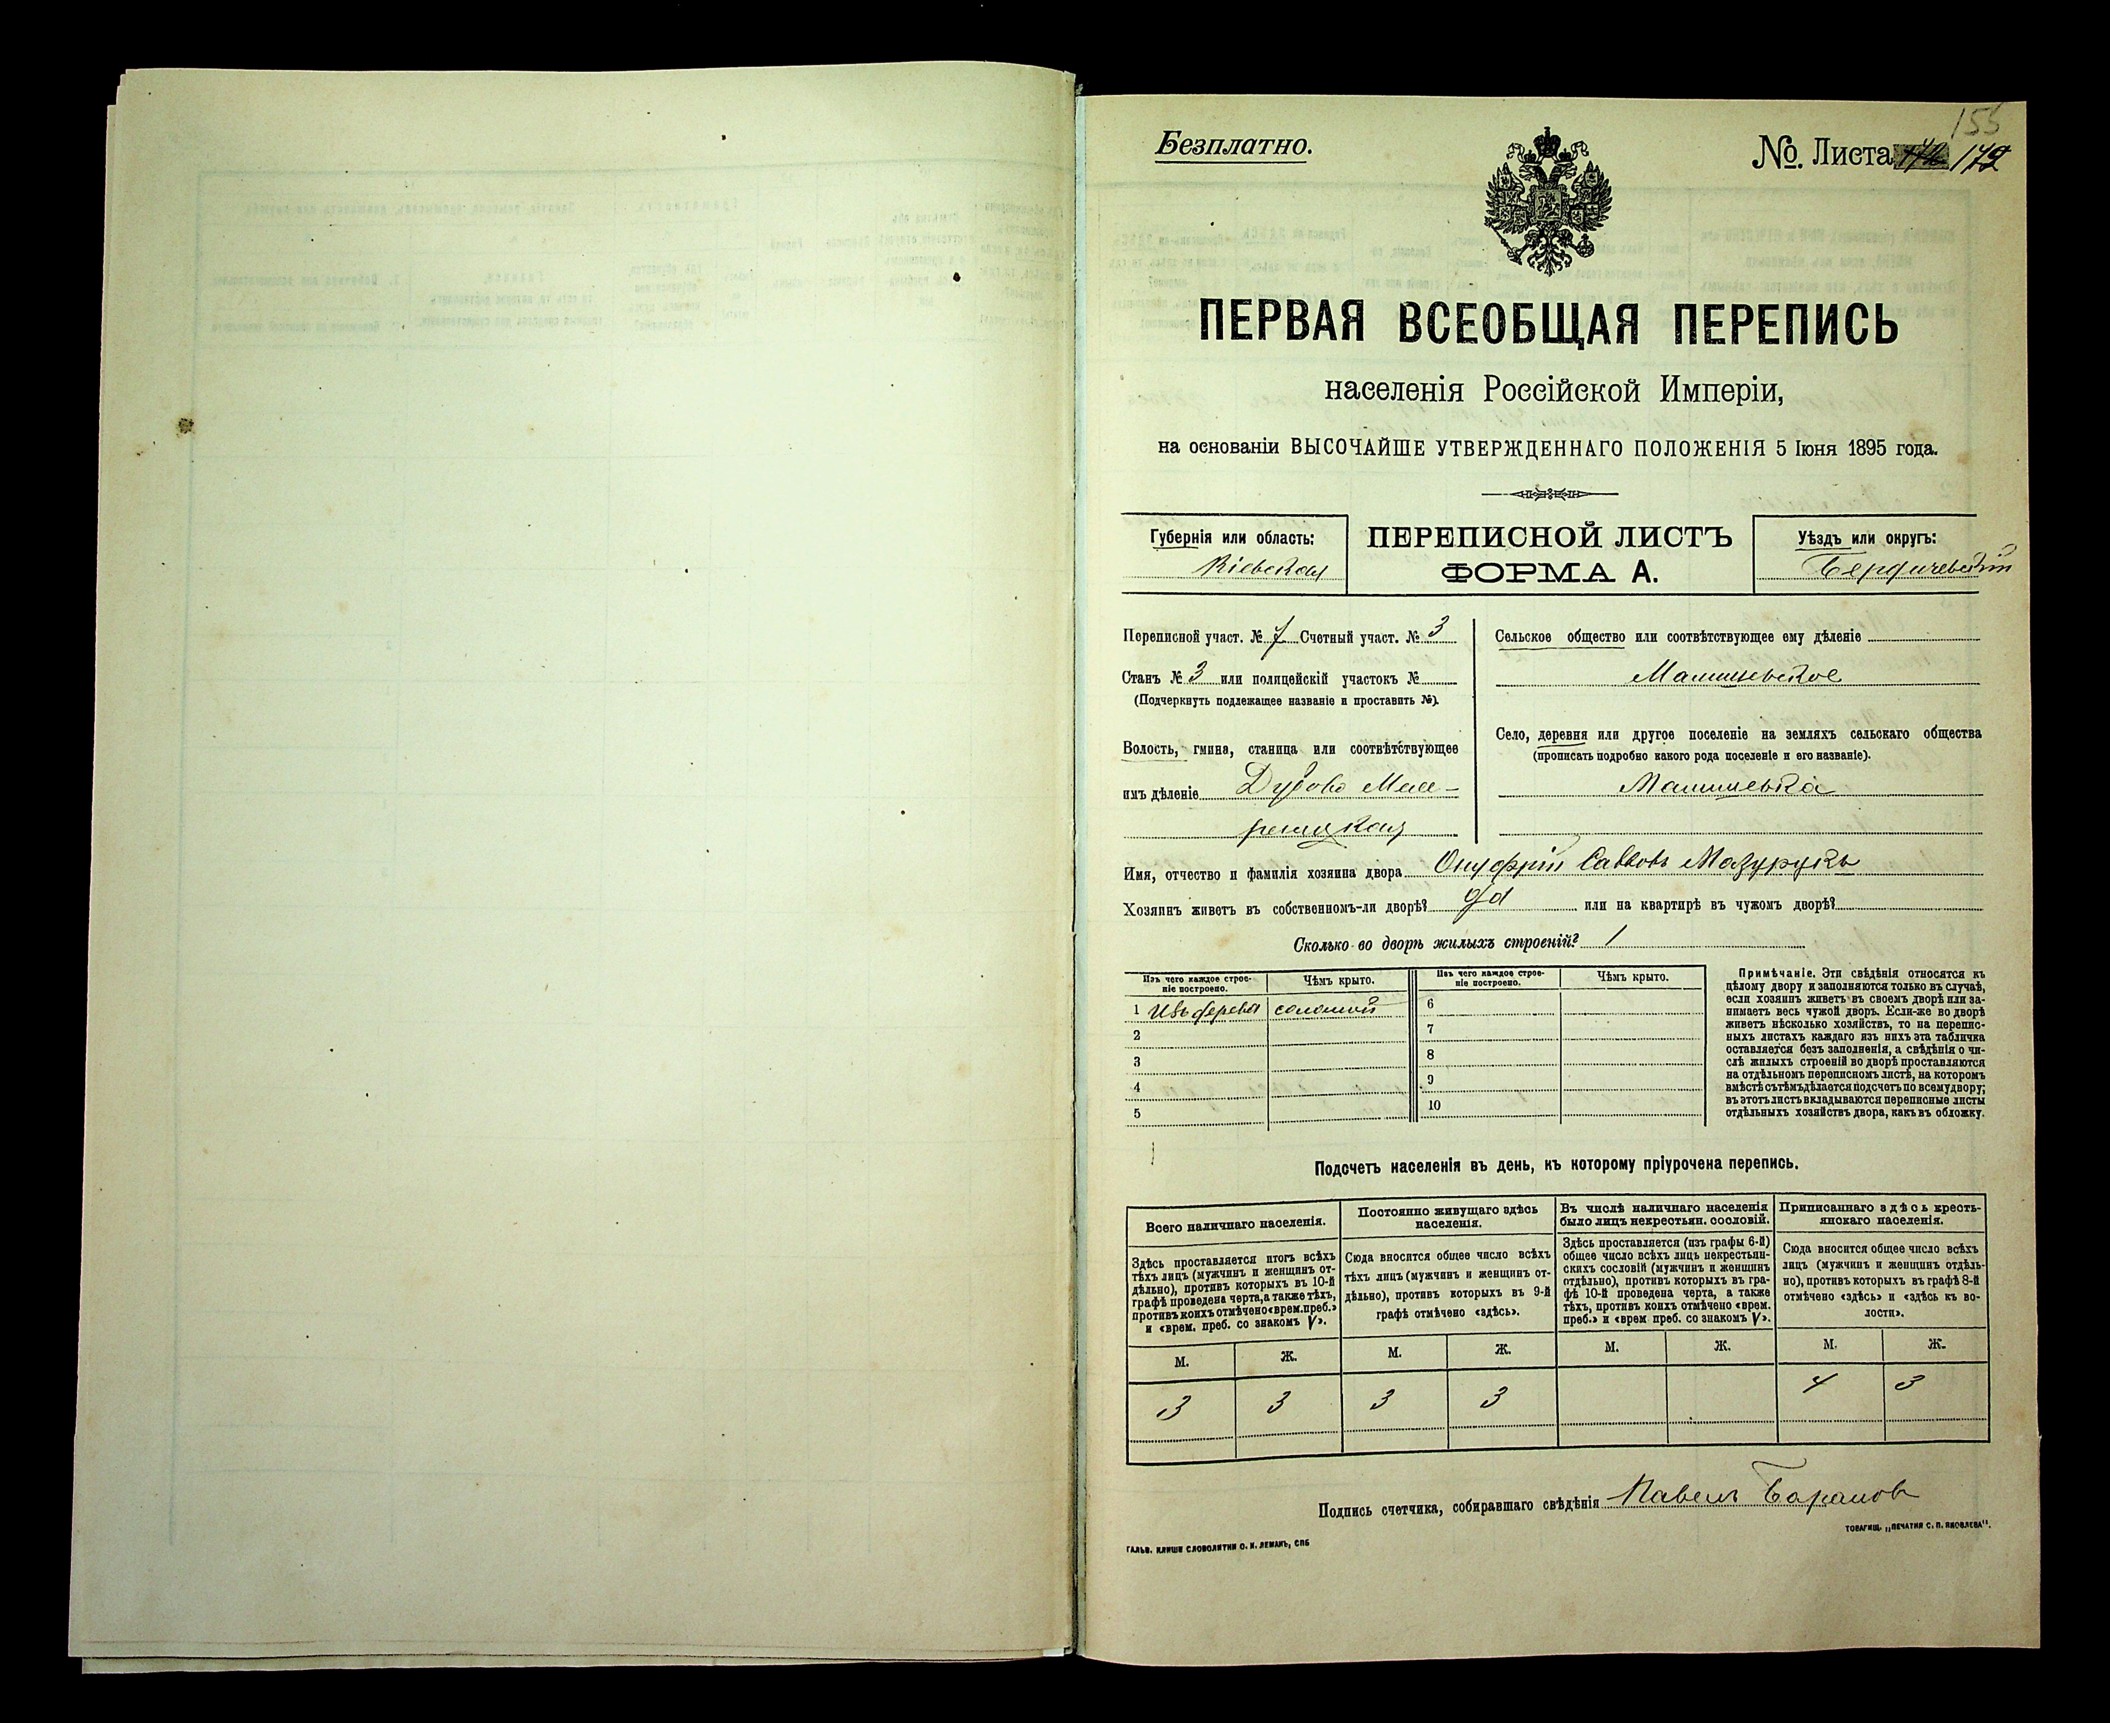 155
Безплатно.
№. Листа 172
ПЕРВАЯ ВСЕОБЩАЯ ПЕРЕПИСЬ
населенія Россійской Имперіи,
на основаніи ВЫСОЧАЙШЕ УТВЕРЖДЕННАГО ПОЛОЖЕНІЯ 5 Іюня 1895 года.
Губернія или область:
Кіевская
ПЕРЕПИСНОЙ ЛИСТЪ
ФОРМА А.
Уѣздъ или округъ:
Бердичевскій
Переписной участ. № 7 Счетный участ. № 3
Станъ № 3 или полицейскій участокъ №
(Подчеркнуть подлежащее названіе и проставить №).
Волость, гмина, станица или соотвѣтствующее
имъ дѣленіе Дубово Мах-
ринецкая
Сельское общество или соотвѣтствующее ему дѣленіе
Село, деревня или другое поселеніе на земляхъ сельскаго общества
(прописать подробно какого рода поселеніе и его названіе).
Имя, отчество и фамилія хозяина двора Онуфрій Саввовъ Мазурукъ
Хозяинъ живетъ въ собственномъ-ли дворѣ? да или на квартирѣ въ чужомъ дворѣ?
Сколько во дворѣ жилыхъ строеній? 1
Изъ чего каждое строе-
ніе построено.
Чѣмъ крыто.
Изъ чего каждое строе-
ніе построено.
Чѣмъ крыто.
1 Изъ дерева соломой
2
3
4
5
6
7
8
9
10
Примѣчаніе. Эти свѣдѣнія относятся къ
цѣлому двору и заполняются только въ случаѣ,
если хозяинъ живетъ въ своемъ дворѣ или за-
нимаетъ весь чужой дворъ. Если-же во дворѣ
живетъ нѣсколько хозяйствъ, то на перепис-
ныхъ листахъ каждаго изъ нихъ эта табличка
оставляется безъ заполненія, а свѣдѣнія о чи-
слѣ жилыхъ строеній во дворѣ проставляются
на отдѣльномъ переписномъ листѣ, на которомъ
вмѣстѣ съ тѣмъ дѣлается подсчетъ по всему двору;
въ этотъ листъ вкладываются переписные листы
отдѣльныхъ хозяйствъ двора, какъ въ обложку.
Подсчетъ населенія въ день, къ которому пріурочена перепись.
Всего наличнаго населенія.
Здѣсь проставляется итогъ всѣхъ
тѣхъ лицъ (мужчинъ и женщинъ от-
дѣльно), противъ которыхъ въ 10-й
графѣ проведена черта, а также тѣхъ,
противъ коихъ отмѣчено «врем. преб.»
и «врем. преб. со знакомъ V».
Постоянно живущаго здѣсь
населенія.
Сюда вносится общее число всѣхъ
тѣхъ лицъ (мужчинъ и женщинъ от-
дѣльно), противъ которыхъ въ 9-й
графѣ отмѣчено «здѣсь».
Въ числѣ наличнаго населенія
было лицъ некрестьян. сословій.
Здѣсь проставляется (изъ графы 6-й)
общее число всѣхъ лицъ некрестьян-
скихъ сословій (мужчинъ и женщинъ
отдѣльно), противъ которыхъ въ гра-
фѣ 10-й проведена черта, а также
тѣхъ, противъ коихъ отмѣчено «врем.
преб.» и «врем преб. со знакомъ V».
Приписаннаго здѣсь кресть-
янскаго населенія.
Сюда вносится общее число всѣхъ
лицъ (мужчинъ и женщинъ отдѣль-
но), противъ которыхъ въ графѣ 8-й
отмѣчено «здѣсь» и «здѣсь къ во-
лости».
М. Ж. М. Ж. М. Ж. М. Ж.
3 3 3 3 4 3
Подпись счетчика, собиравшаго свѣдѣнія Павелъ Баранов
ТОВАРИЩ. „ПЕЧАТНЯ С. П. ЯКОВЛЕВА".
ГАЛЬВ. КЛИШЕ СЛОВОЛИТНИ О. И. ЛЕМАНЪ, СПБ